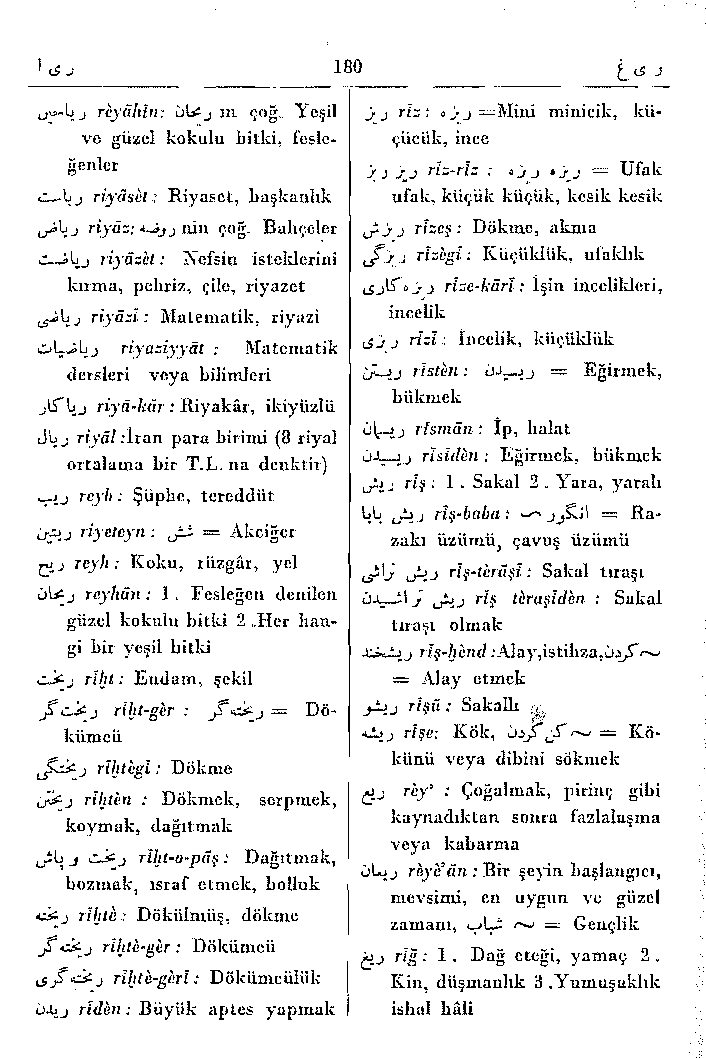 ر ی ا
180
ر ی غ
ریاحین reyāhîn: ریحان ın çoğ. Yeşil
ve güzel kokulu bitki, fesle-
ğenler
ریاست riyāsèt: Riyaset, başkanlık
ریاض riyāz: روضه nin çoğ. Bahçeler
ریاضت riyāzèt: Nefsin isteklerini
kırma, pehriz, çile, riyazet
ریاضی riyāzî: Matematik, riyazi
ریاضیات riyaziyyāt : Matematik
dersleri veya bilimleri
ریاکار riyā-kār : Riyakâr, ikiyüzlü
ریال riyāl :İran para birimi (8 riyal
ortalama bir T.L. na denktir)
ریب reyb: Şüphe, tereddüt
ریتین riyeteyn : شش = Akciğer
ریح reyh: Koku, rüzgâr, yel
ریحان reyhān: 1. Fesleğen denilen
güzel kokulu bitki 2.Her han-
gi bir yeşil bitki
ریخت rîht: Endam, şekil
ریخت گر rîht-gèr : ریخته گر = Dö-
kümcü
ریختگی rîhtègî: Dökme
ریختن rîhtèn : Dökmek, serpmek,
koymak, dağıtmak
ریخت و پاش rîht-o-pāş: Dağıtmak,
bozmak, israf etmek, bolluk
ریخته rîhtè: Dökülmüş, dökme
ریخته گر rîhtè-gèr : Dökümcü
ریخته گری rîhtè-gèrî: Dökümcülük
ریدن rîdèn: Büyük aptes yapmak
ریز rîz: ریزه =Mini minicik, kü-
çücük, ince
ریز ریز rîz-rîz : ریزه ریزه = Ufak
ufak, küçük küçük, kesik kesik
ریزش rîzeş: Dökme, akma
ریزگی rîzègî: Küçüklük, ufaklık
ریزه کاری rîze-kārî: İşin incelikleri,
incelik
ریزی rîzî: İncelik, küçüklük
ریستن rîstèn: ریسیدن = Eğirmek,
bükmek
ریسمان rîsmān: İp, halat
ریسیدن rîsidèn: Eğirmek, bükmek
ریش rîş: 1. Sakal 2. Yara, yaralı
ریش بابا rîş-baba: انگور ~ = Ra-
zakı üzümü, çavuş üzümü
ریش تراشی rîş-tèrāşî: Sakal tıraşı
ریش تراشیدن rîş tèraşîdèn : Sakal
tıraşı olmak
ریشخند rîş-hènd :Alay,istihza, ~ کردن
= Alay etmek
ریشو rîşû: Sakallı
ریشه rîşe: Kök, ~ کن کردن = Kö-
künü veya dibini sökmek
ریع rèy' : Çoğalmak, pirinç gibi
kaynadıktan sonra fazlalaşma
veya kabarma
ریعان rèyè'ān : Bir şeyin başlangıcı,
mevsimi, en uygun ve güzel
zamanı, ~ شباب = Gençlik
ریغ rîğ: 1. Dağ eteği, yamaç 2.
Kin, düşmanlık 3.Yumuşuklık
ishal hâli